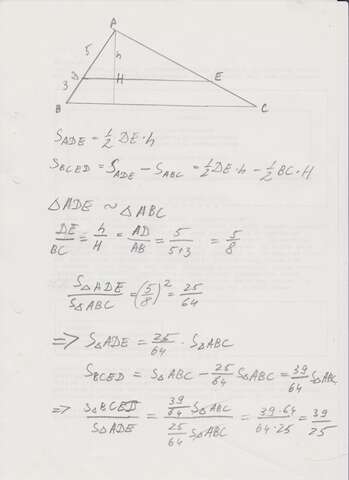 A
5
h
D
H
E
3
B
C
S_ADE = 1/2 DE·h
S_BCED = S_ADE - S_ABC = 1/2 DE·h - 1/2 BC·H
△ADE ~ △ABC
DE/BC = h/H = AD/AB = 5/(5+3) = 5/8
S△ADE/S△ABC = (5/8)² = 25/64
=> S△ADE = 25/64 · S△ABC
S_BCED = S△ABC - 25/64 S△ABC = 39/64 S△ABC
=> S△BCED/S△ADE = (39/64 S△ABC)/(25/64 S△ABC) = 39·64/64·25 = 39/25